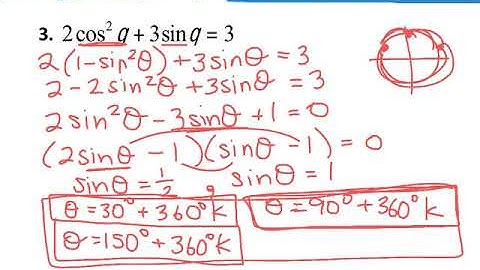 3. 2cos² q + 3sin q = 3
2(1-sin²θ) + 3sinθ = 3
2 - 2sin²θ + 3sinθ = 3
2sin²θ - 3sinθ + 1 = 0
(2sinθ - 1)(sinθ - 1) = 0
sinθ = 1/2, sinθ = 1
θ = 30° + 360°k θ = 90° + 360°k
θ = 150° + 360°k